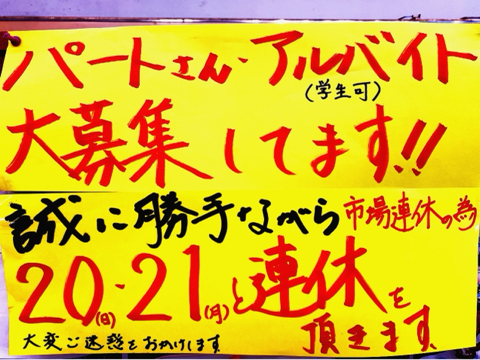 パートさん・アルバイト
(学生可)
大募集してます!!
誠に勝手ながら 市場連休の為
20(日)・21(月)と連休を
頂きます。
大変ご迷惑をおかけします